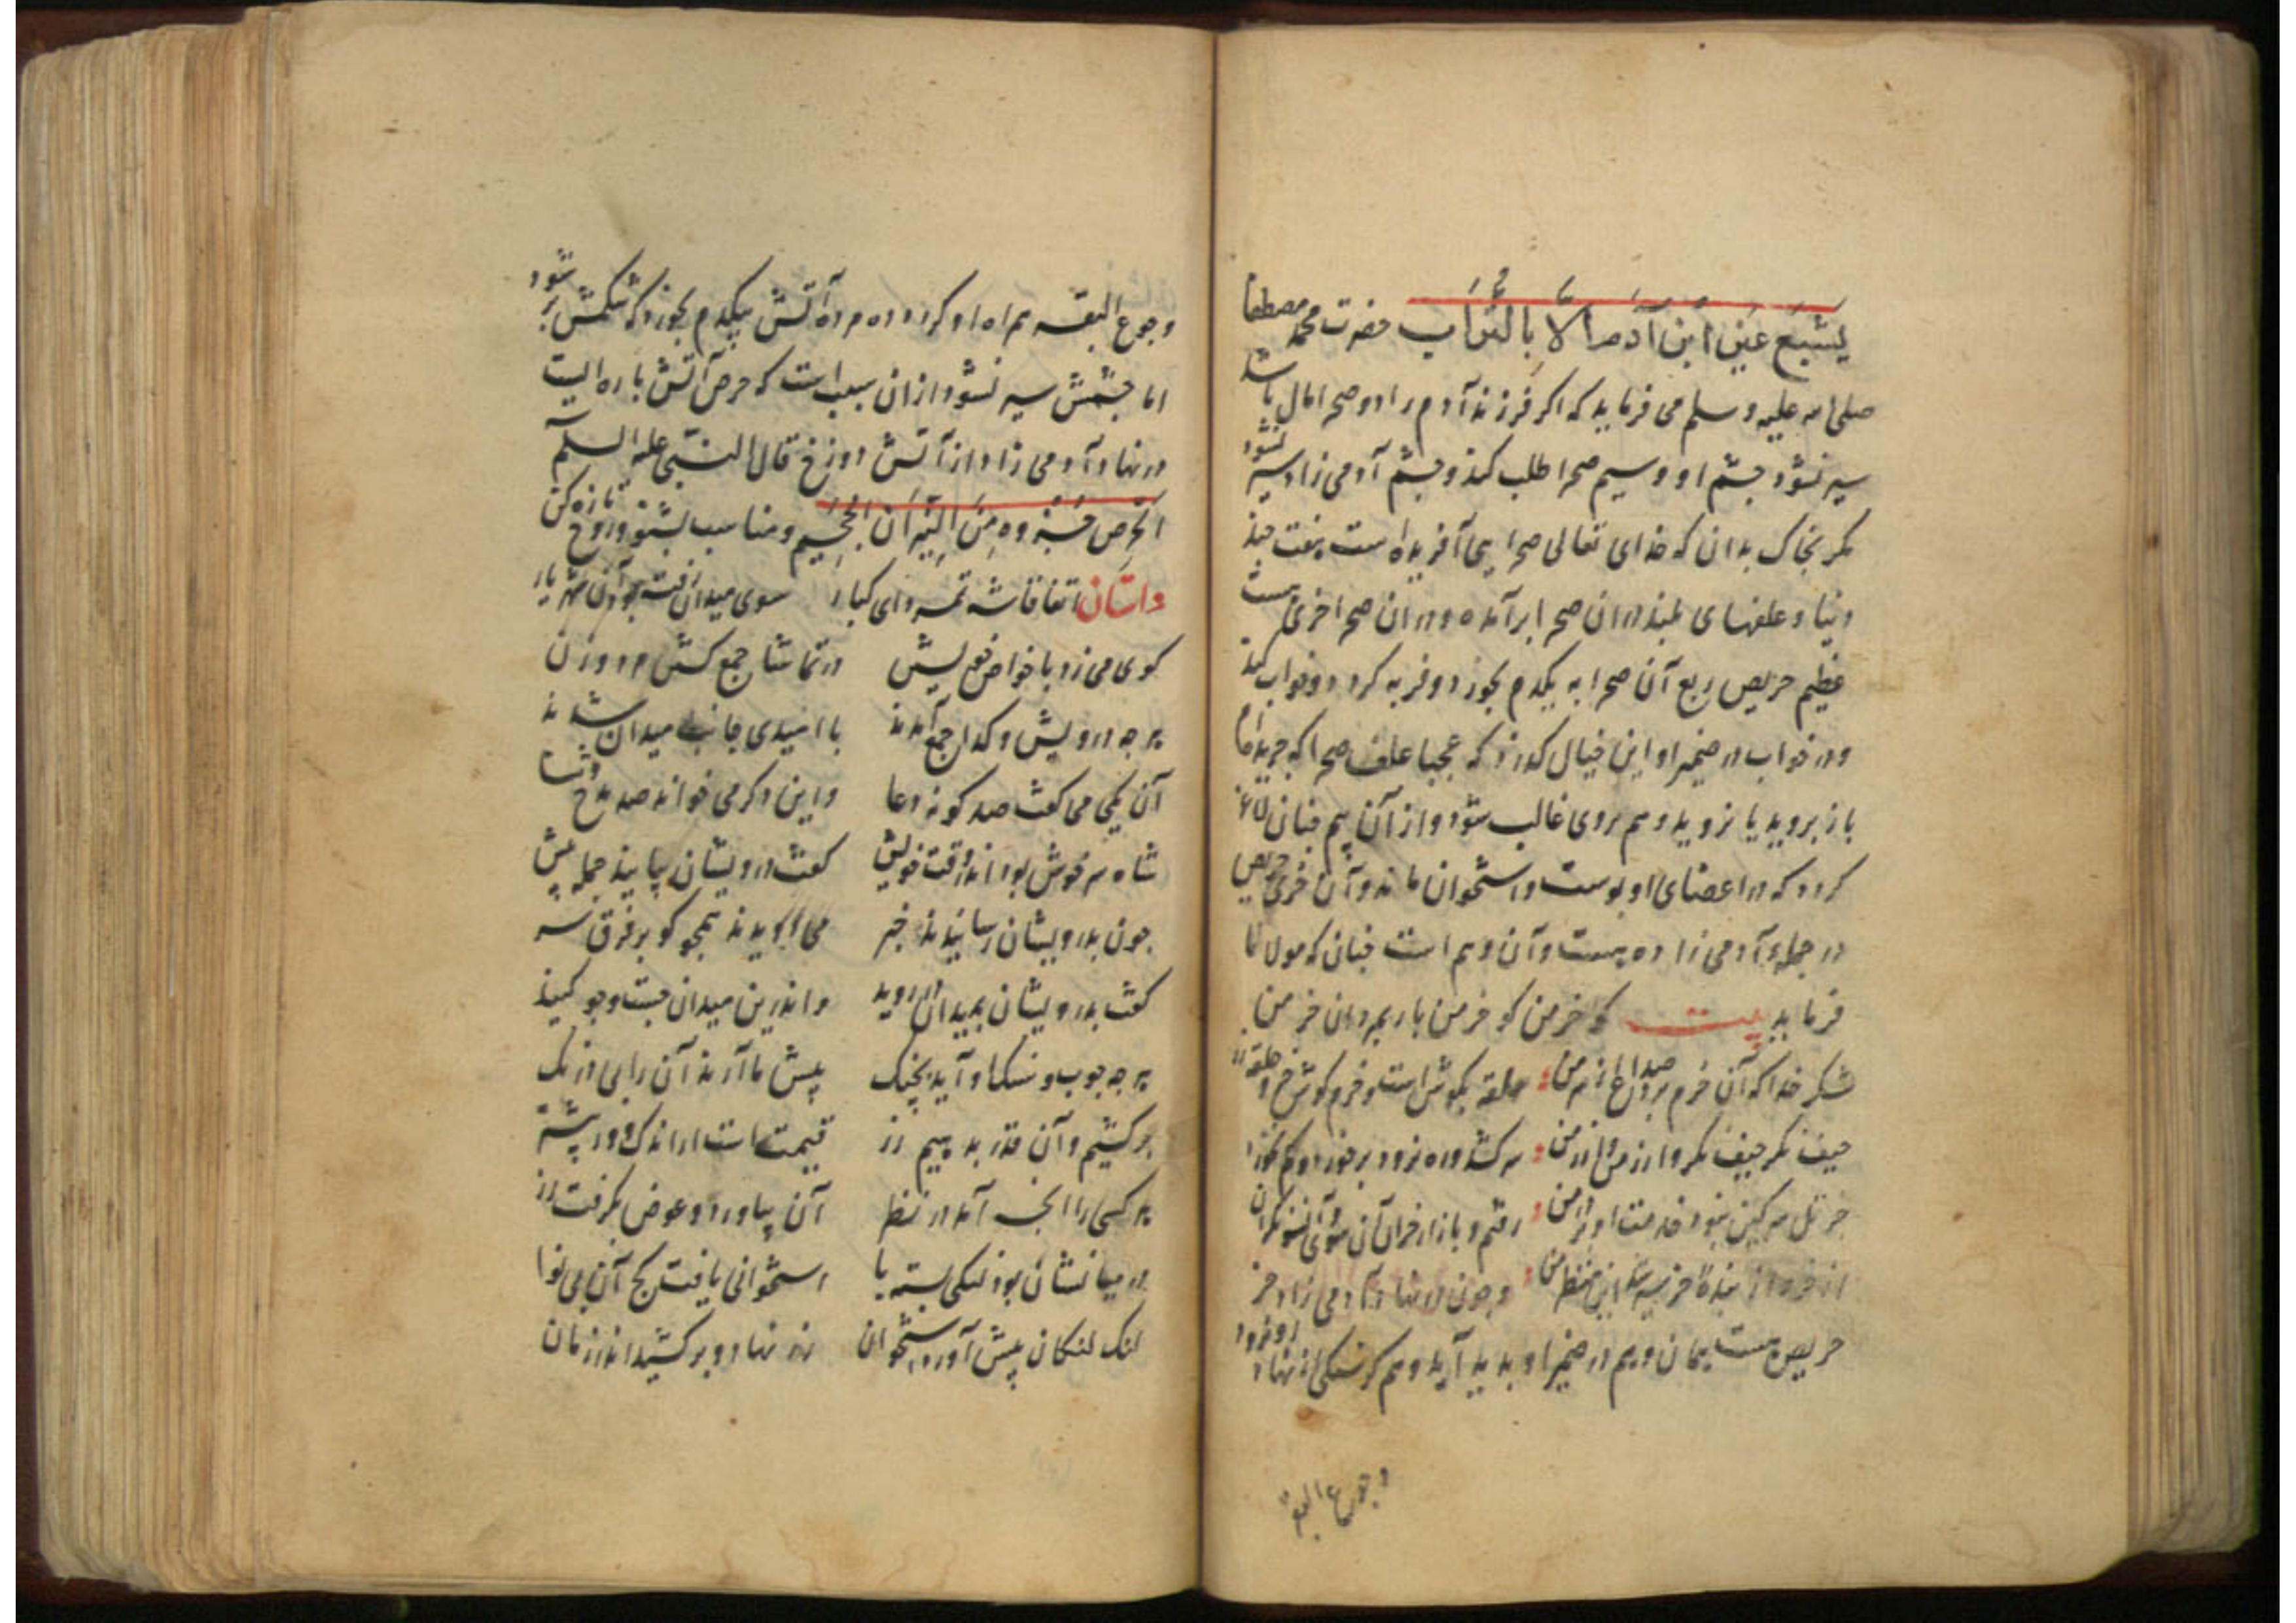 یشبع عین ابن آدم الا بالتراب حضرت محمد مصطفا
صلی اله علیه وسلم می فرماید که اکر فرزند آدم را دو صحرا مال باشد
سیر نشود چشم او و سیم صحرا طلب کند و چشم آدمی زاد سیر نشود
مکر بخاک بدان که خدای تعالی صحرایی آفریده است هفت چند
دنیا و علفهای بلند در ان صحرا برآمده و در ان صحرا خری ست
عظیم حریص ربع آن صحرا به یکدم بخورد و فربه کردد و خواب کند
و در خواب در ضمیر او این خیال کذرد که عجبا علف صحرا که چریده ام
باز بروید یا نروید وهم بروی غالب شود و از آن بیم چنان لاغر
کردد که در اعضای او پوست و استخوان ماند و آن خری حریص
در جمله آدمی زاده هست و آن وهم است چنان که مولانا
فرماید بیت کو خرمن کو خرمن پار بمرد ان خر من
شکر خدا که آن خرم برد صداع از سر من حلقه بکوش است خرم کوش خر و حلقه زر
حیف نکر حیف نکر وا زر من وا زر من سر کشد و ره نرود
جز تل سرکین نبود خدمت او بر در من رفتم و بازار خران آن سوی آن سو نکران
از خر و از بنده خر سیر شد این منظر من و چون در نهاد آدمی زاد خر
حریص هست همان وهم در ضمیر او بدید آید وهم کرسنکی از نهاد او نرود
وجوع البقر
وجوع البقر همراه او کردد و ده مرده آتش بیکدم بخورد که شکمش پر شود
اما چشمش سیر نشود از ان سبب است که حرص آتش پاره ایست
در نهاد آدمی زاد از آتش دوزخ قال النبی علیه السلم
الحرص من النیران الجحیم و مناسب بشنو و روح تازه کن
داستان اتفاقا شه تمر وای کبار سوی میدان رفت بود آن شهریار
کوی می زد با خواص قوم خویش در تماشا جمع کشته مرد و زن
هر چه درویش و کدا جمع آمدند با امیدی جانب میدان شدند
آن یکی می کفت صد کونه دعا و این دکر می خواند صد مدح و ثنا
شاه سر خوش بود اندر وقت خویش کفت درویشان بیایند جمله پیش
چون بدرویشان رسانیدند خبر می دویدند همچو کو بر فرق سر
کفت بدرویشان بمیدان در روید و اندرین میدان جست وجو کنید
هر چه چوب و سنک او آید بچنک پیش ما آرند آن را بی درنک
بر کشیم و آن قدر بدهیم زر قیمت است ار اندک و ور بیشتر
هر کسی را انچه آمد در نظر آن بیاورد و عوض بکرفت زر
در میانشان بود لنکی بسته پا استخوانی یافت کج آن بی نوا
لنک لنکان پیش آورد استخوان زر نهاد و بر کشید اندر زمان